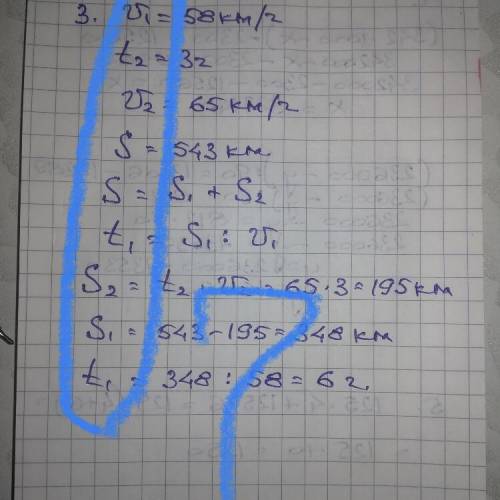 3. v₁ = 58 км/г
t₂ = 3г
v₂ = 65 км/г
S = 543 км
S = S₁ + S₂
t₁ = S₁ : v₁
S₂ = t₂ · v₂ = 65 · 3 = 195 км
S₁ = 543 - 195 = 348 км
t₁ = 348 : 58 = 6 г.